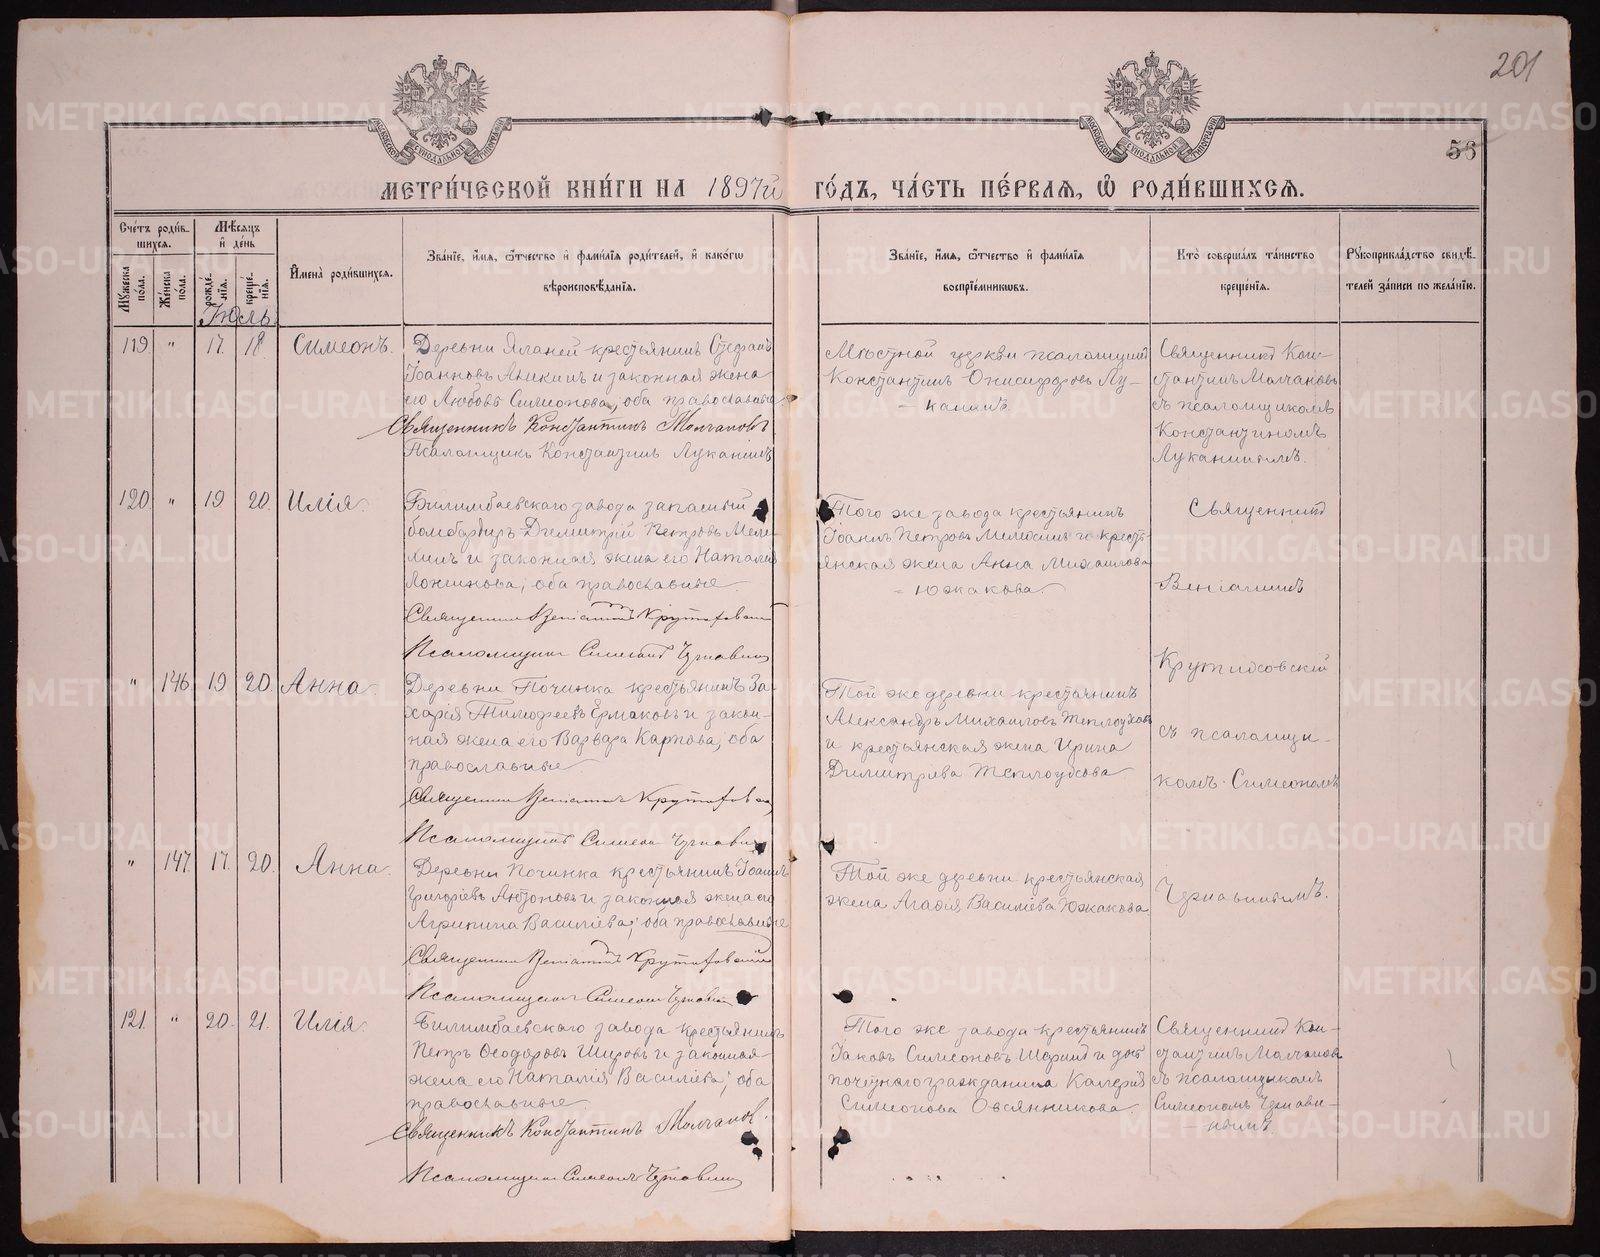 201
56
МЕТРИ́ЧЕСКОЙ КНИ́ГИ НА 1897й ГО́ДЪ, ЧА́СТЬ ПЕ́РВАѦ, Ѽ РОДИ́ВШИХСѦ.
Сче́тъ роди́в-
шихсѧ.
Мѣ́сѧцъ
и҆ де́нь
Мꙋжеска по́ла.
Же́нска по́ла.
рожде́-
нїѧ.
креще́-
нїѧ.
И҆мена̀ роди́вшихсѧ.
Зва́нїе, и҆́мѧ, ѻ҆́тчество и҆ фами́лїѧ роди́телей, и҆ како́гѡ
вѣроисповѣ́данїѧ.
Зва́нїе, и҆́мѧ, ѻ҆́тчество и҆ фами́лїѧ
воспрїе́мникѡвъ.
Кто̀ соверша́лъ та́инство
креще́нїѧ.
Рꙋкоприкла́дство свидѣ́-
телей за́писи по жела́нїю.
Іюль
119 " 17. 18 Симеонъ.
Деревни Яланей крестьянинъ Стефанъ
Іоанновъ Аникинъ и законная жена
его Любовь Симеонова, оба православные
Священникъ Константинъ Молчановъ
Псаломщикъ Константинъ Луканинъ
Мѣстной церкви псаломщикъ
Константинъ Онисифоровъ Лу-
- канинъ.
Священникъ Кон-
стантинъ Молчановъ
съ псаломщикомъ
Константиномъ
Луканинымъ.
120 " 19 20. Илія.
Билимбаевскаго завода запасный
бомбардиръ Димитрій Петровъ
и законная жена его Наталія
Логинова, оба православные
Священникъ Веніаминъ Крутиховскій
Псаломщикъ Симеонъ Чернавинъ
Того же завода крестьянинъ
Іоаннъ Петровъ и кресть-
янская жена Анна Михаилова
- Южакова.
Священникъ
Веніаминъ
Крутиховскій
съ псаломщи-
комъ Симеономъ
Чернавинымъ.
" 146 19 20. Анна.
Деревни Починка крестьянинъ За-
харія Тимофеевъ Ермаковъ и закон-
ная жена его Варвара Карпова, оба
православные
Священникъ Веніаминъ Крутиховскій
Псаломщикъ Симеонъ Чернавинъ
Той же деревни крестьянинъ
Александръ Михаиловъ Теплоуховъ
и крестьянская жена Ирина
Димитріева Теплоухова
" 147. 17. 20. Анна.
Деревни Починка крестьянинъ Іоаннъ
Григоріевъ Антоновъ и законная жена его
Агрипина Василіева, оба православные
Священникъ Веніаминъ Крутиховскій
Псаломщикъ Симеонъ Чернавинъ
Той же деревни крестьянская
жена Агафія Василіева Южакова
121. " 20. 21. Илія.
Билимбаевскаго завода крестьянинъ
Петръ Ѳеодоровъ Шировъ и законная
жена его Наталія Василіева, оба
православные
Священникъ Константинъ Молчановъ
Псаломщикъ Симеонъ Чернавинъ
Того же завода крестьянинъ
Іаковъ Симеоновъ и дочь
почетнаго гражданина Калерія
Симеонова Овсянникова.
Священникъ Кон-
стантинъ Молчановъ
съ псаломщикомъ
Симеономъ Чернави-
- нымъ.
METRIKI.GASO-URAL.RU